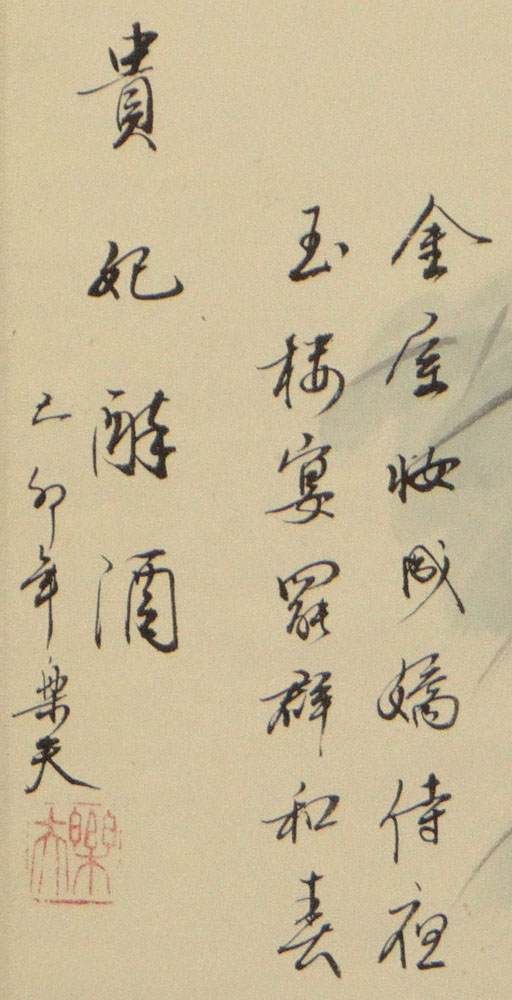 金屋妆成嬌侍夜
玉楼宴罷群和春
貴妃醉酒
己卯年樂天
樂天